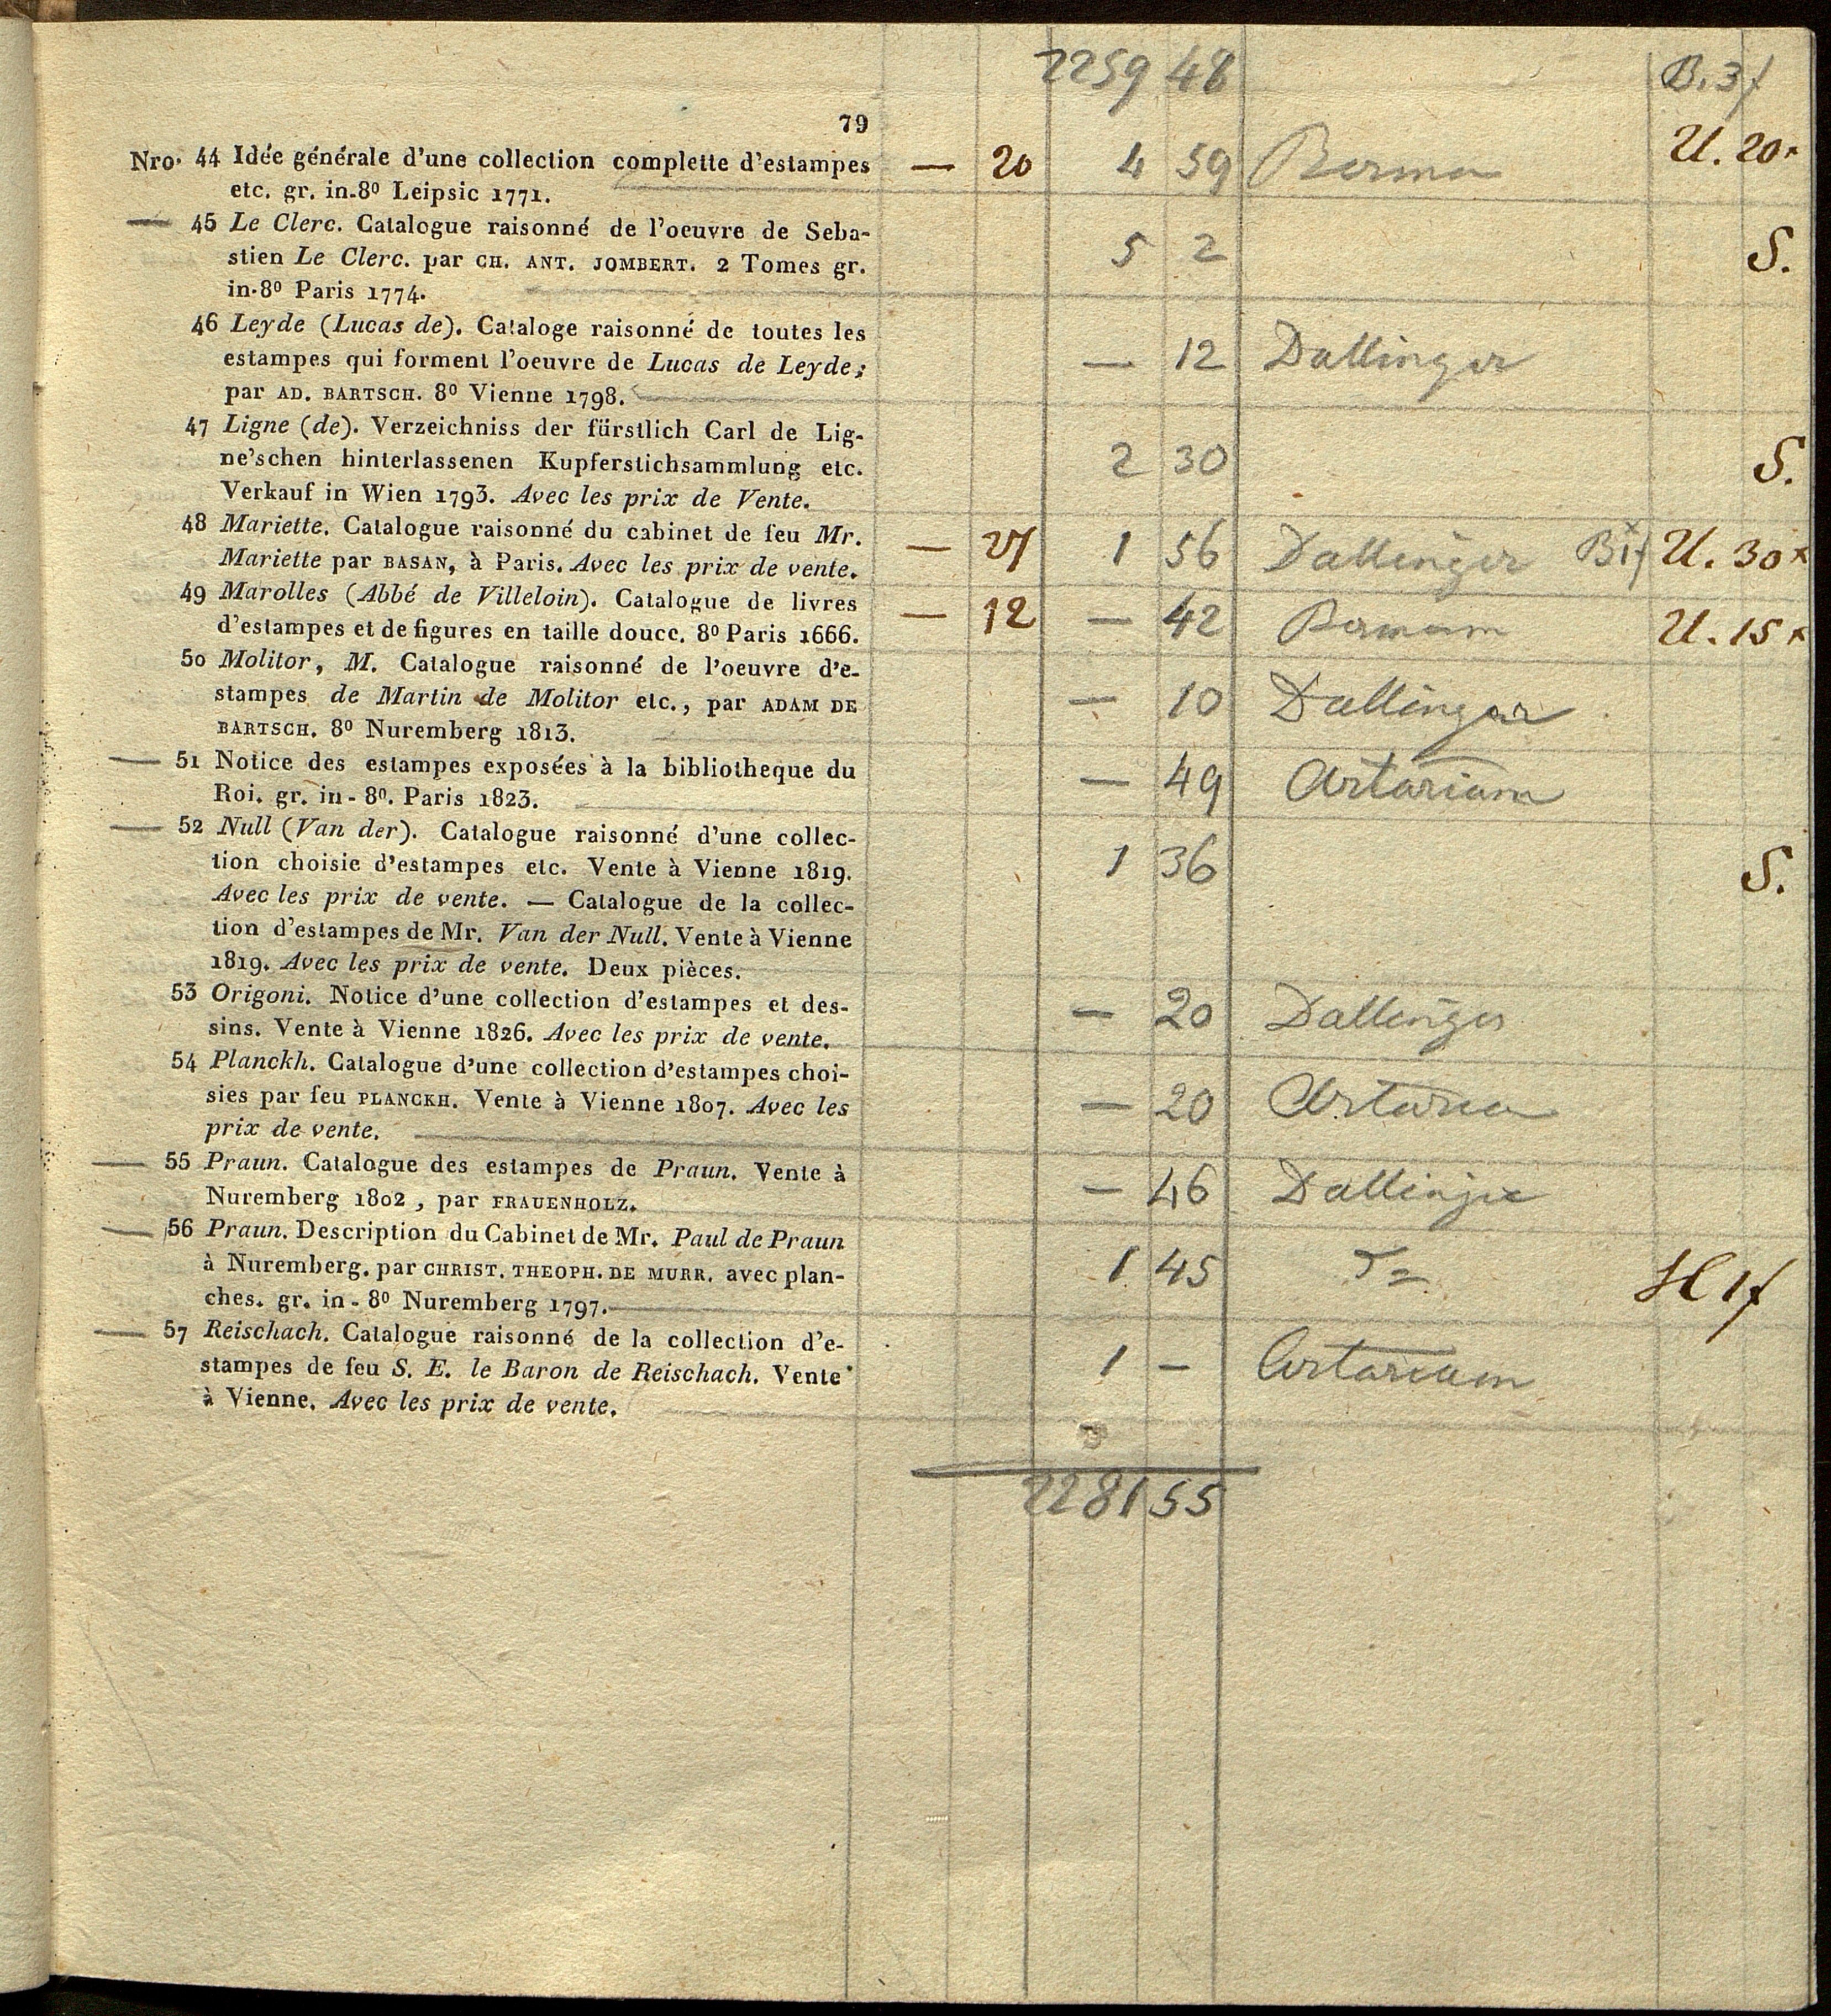 2259 48 B. 3f
79
Nro. 44 Idée générale d'une collection complette d'estampes — 20 4 59 U. 20x
etc. gr. in-8⁰ Leipsic 1771.
— 45 Le Clerc. Catalogue raisonné de l'oeuvre de Seba-
stien Le Clerc. par CH. ANT. JOMBERT. 2 Tomes gr. 5 2 S.
in-8⁰ Paris 1774.
46 Leyde (Lucas de). Cataloge raisonné de toutes les
estampes qui forment l'oeuvre de Lucas de Leyde; — 12 Dallinger
par AD. BARTSCH. 8⁰ Vienne 1798.
47 Ligne (de). Verzeichniss der fürstlich Carl de Lig-
ne'schen hinterlassenen Kupferstichsammlung etc. 2 30 S.
Verkauf in Wien 1793. Avec les prix de Vente.
48 Mariette. Catalogue raisonné du cabinet de feu Mr.
Mariette par BASAN, à Paris. Avec les prix de vente. — 1 56 Dallinger B 1f U. 30x
49 Marolles (Abbé de Villeloin). Catalogue de livres
d'estampes et de figures en taille douce. 8⁰ Paris 1666. — 12 — 42 Bermann U. 15x
50 Molitor, M. Catalogue raisonné de l'oeuvre d'e-
stampes de Martin de Molitor etc., par ADAM DE — 10 Dallinger
BARTSCH. 8⁰ Nuremberg 1813.
— 51 Notice des estampes exposées à la bibliotheque du — 49 Artariam
Roi. gr. in-8⁰. Paris 1823.
— 52 Null (Van der). Catalogue raisonné d'une collec-
tion choisie d'estampes etc. Vente à Vienne 1819. 1 36 S.
Avec les prix de vente. — Catalogue de la collec-
tion d'estampes de Mr. Van der Null. Vente à Vienne
1819. Avec les prix de vente. Deux pièces.
53 Origoni. Notice d'une collection d'estampes et des- — 20 Dallinger
sins. Vente à Vienne 1826. Avec les prix de vente.
54 Planckh. Catalogue d'une collection d'estampes choi-
sies par feu PLANCKH. Vente à Vienne 1807. Avec les — 20 Artaria
prix de vente.
— 55 Praun. Catalogue des estampes de Praun. Vente à — 46 Dallinger
Nuremberg 1802, par FRAUENHOLZ.
— 56 Praun. Description du Cabinet de Mr. Paul de Praun
à Nuremberg. par CHRIST. THEOPH. DE MURR. avec plan- 1 45 H 1f
ches. gr. in-8⁰ Nuremberg 1797.
— 57 Reischach. Catalogue raisonné de la collection d'e-
stampes de feu S. E. le Baron de Reischach. Vente 1 — Artariam
à Vienne. Avec les prix de vente.
2281 55